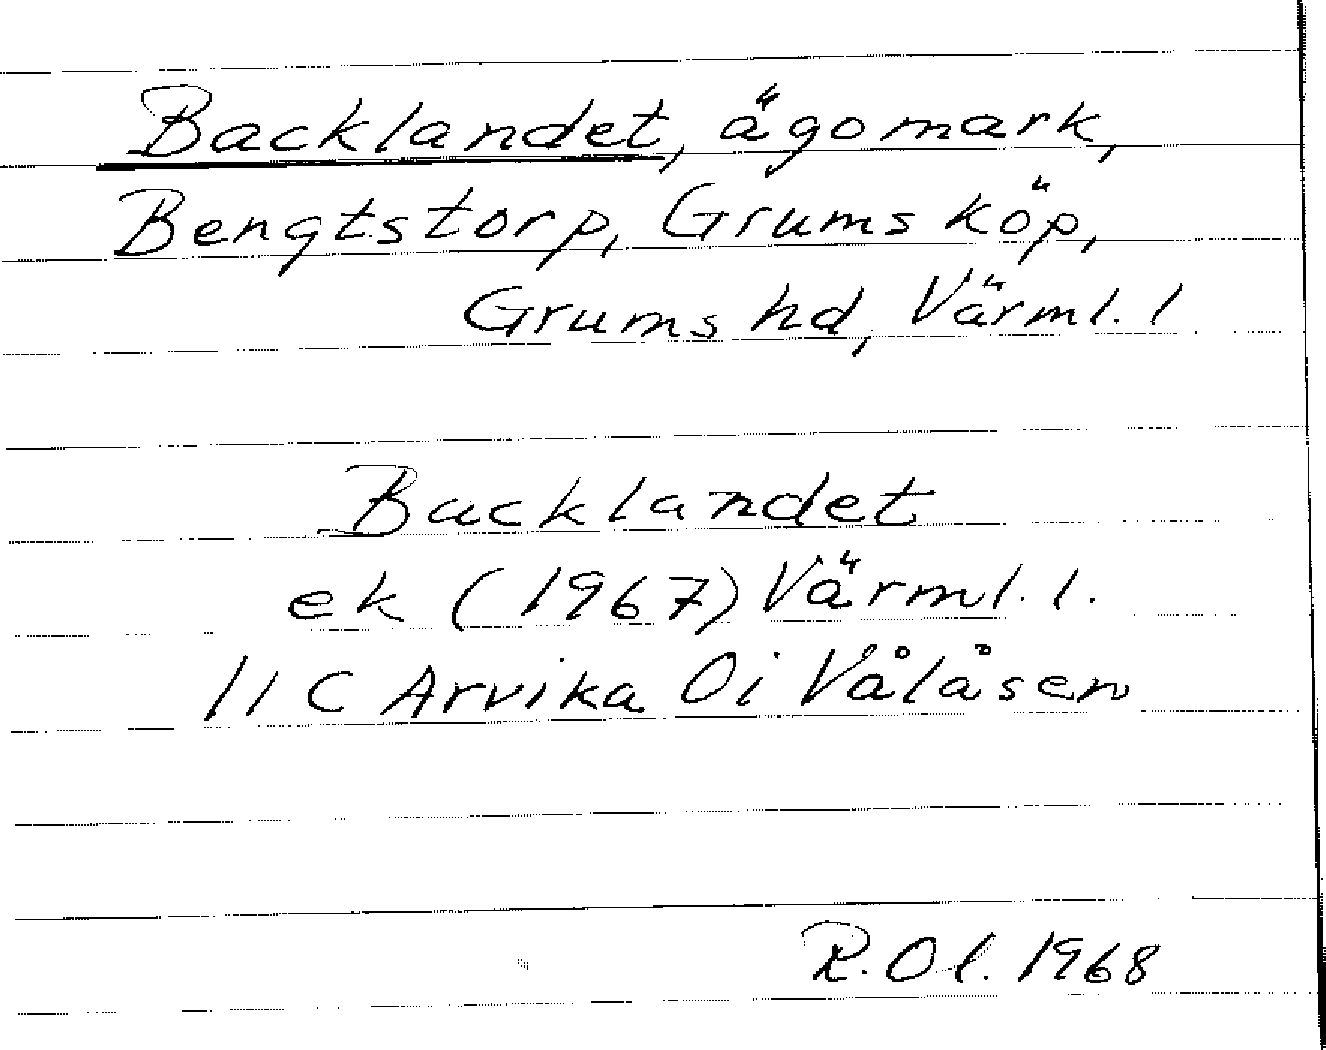 Backlandet, ägomark,
Bengtstorp, Grums köp,
Grums hd, Värml. l
Backlandet
ek (1967) Värml. l.
11 C Arvika 0i Vålåsen
R. Ol. 1968